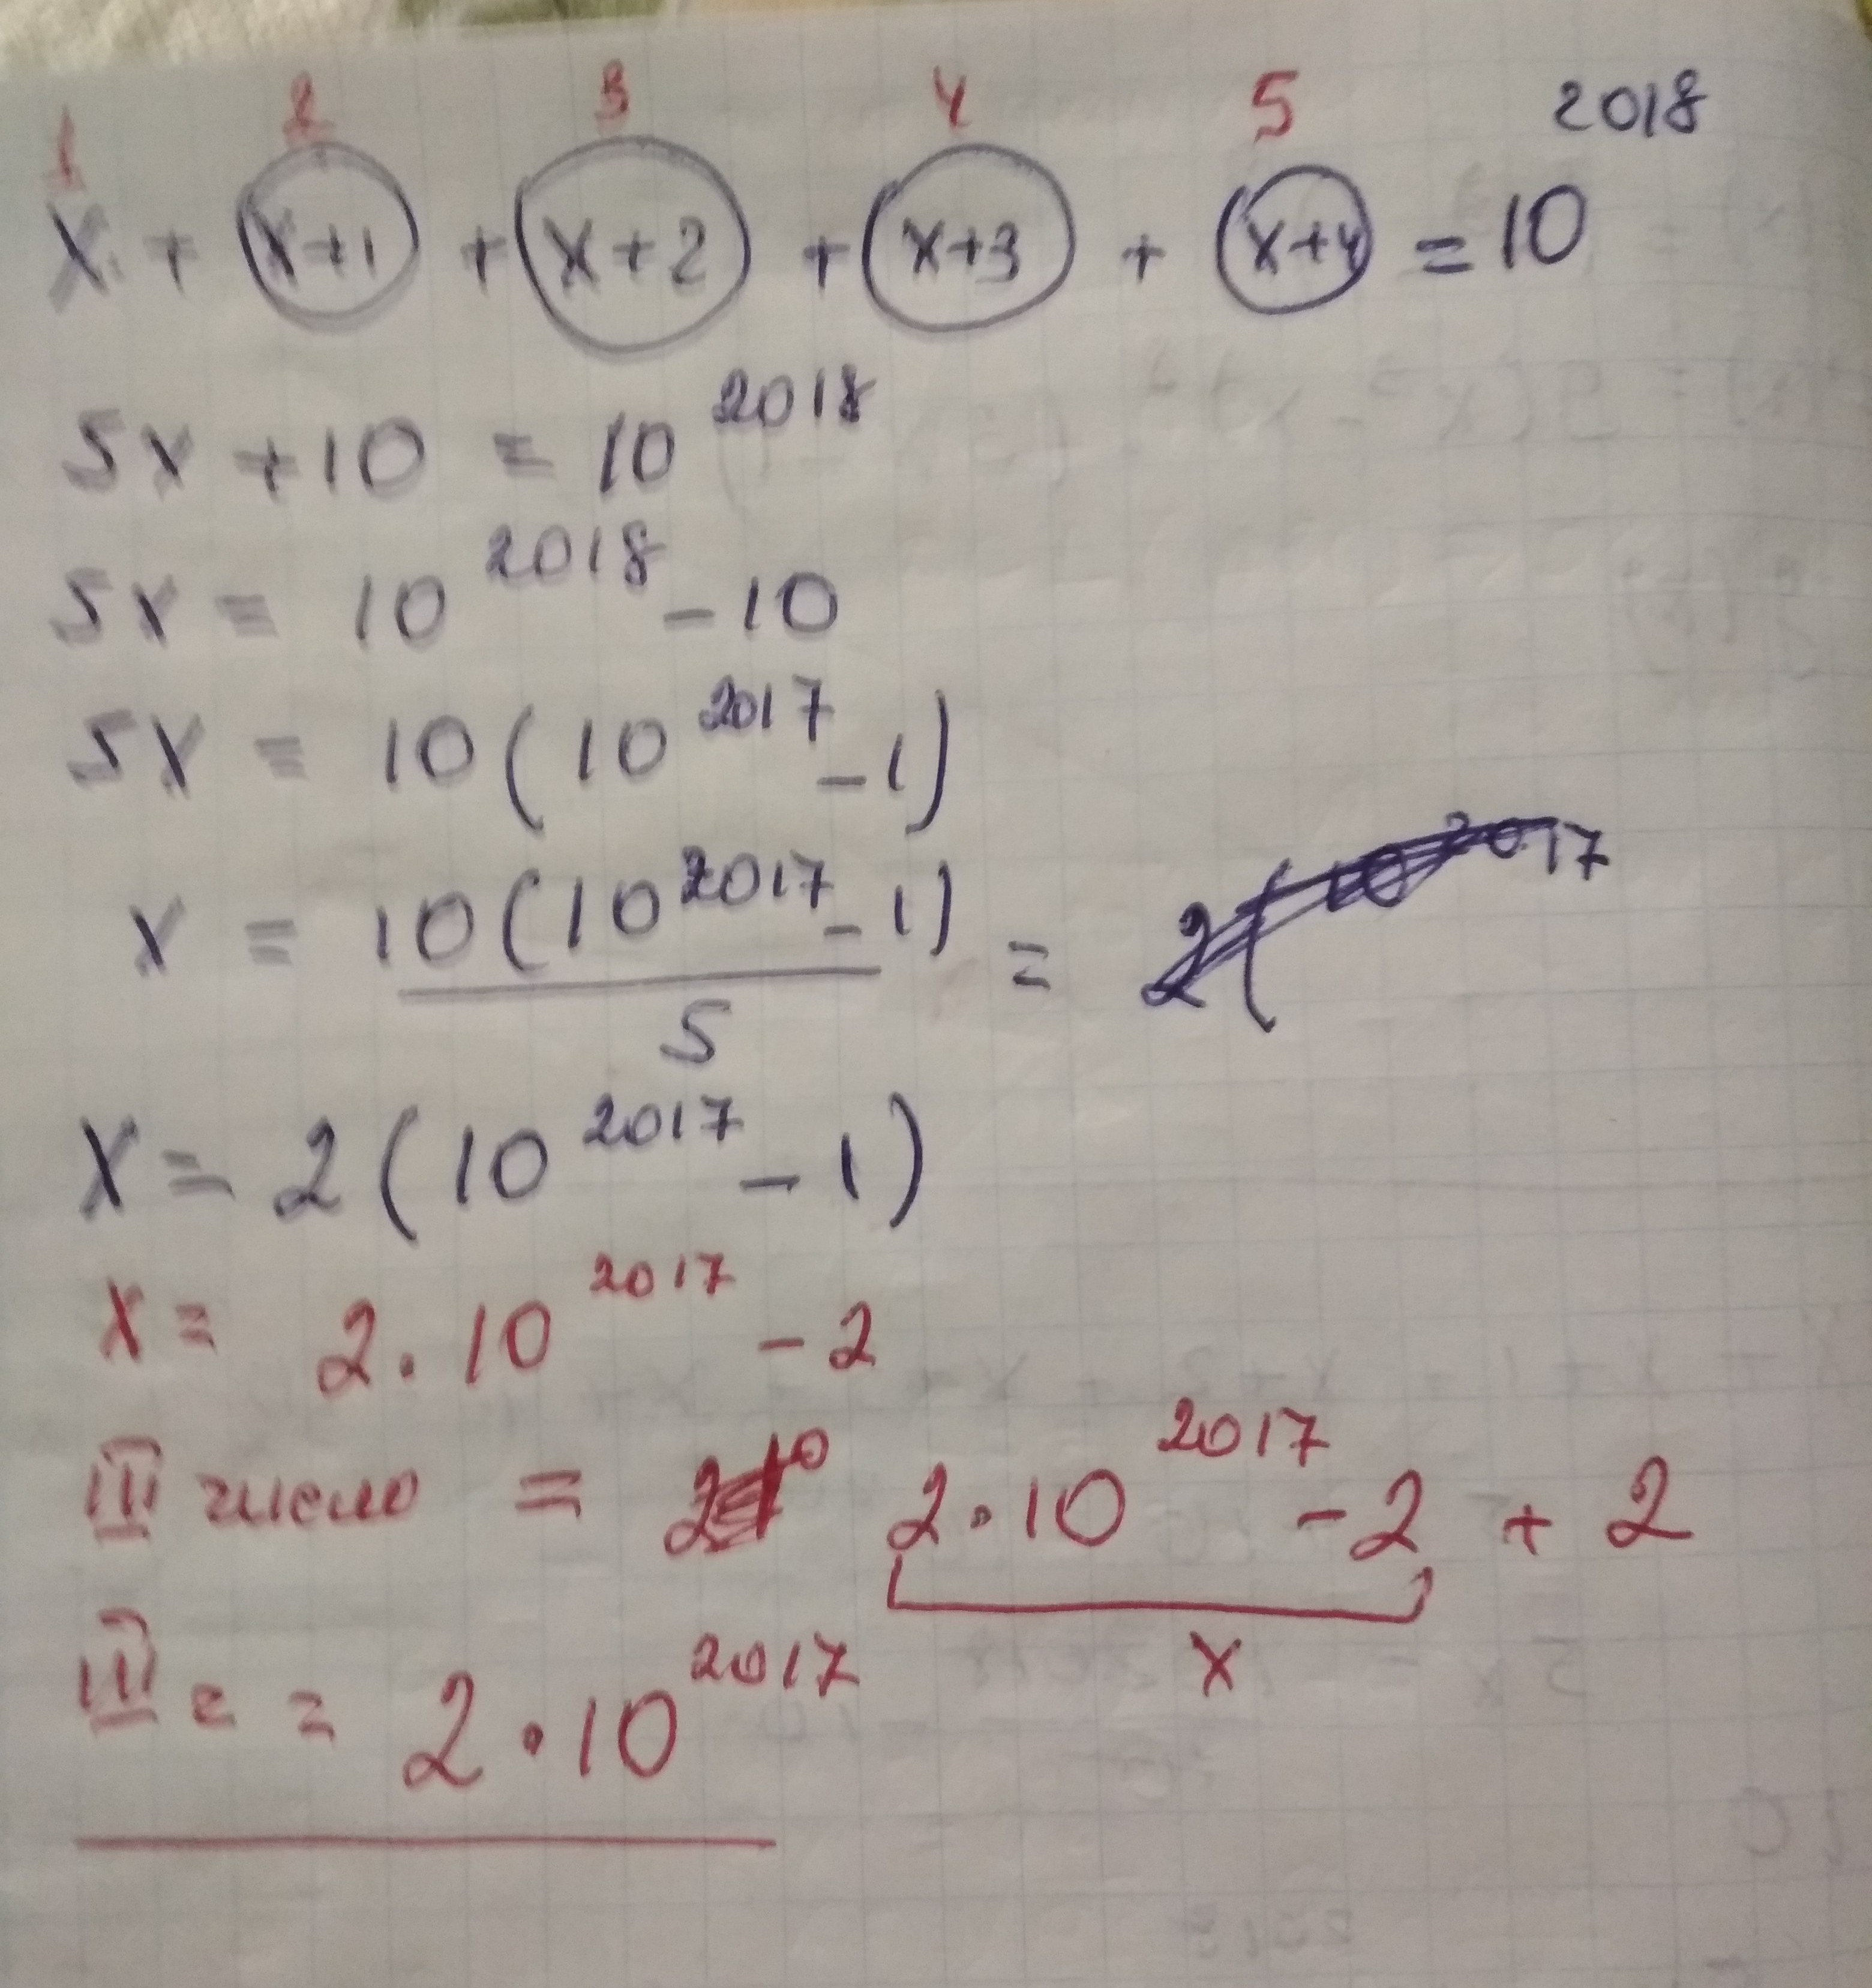 1 2 3 4 5
x + (x+1) + (x+2) + (x+3) + (x+4) = 10^2018
5x + 10 = 10^2018
5x = 10^2018 - 10
5x = 10(10^2017 - 1)
x = 10(10^2017 - 1) / 5 = 2(10^2017
x = 2(10^2017 - 1)
x = 2·10^2017 - 2
III число = 2·10^2017 - 2 + 2
x
III = = 2·10^2017